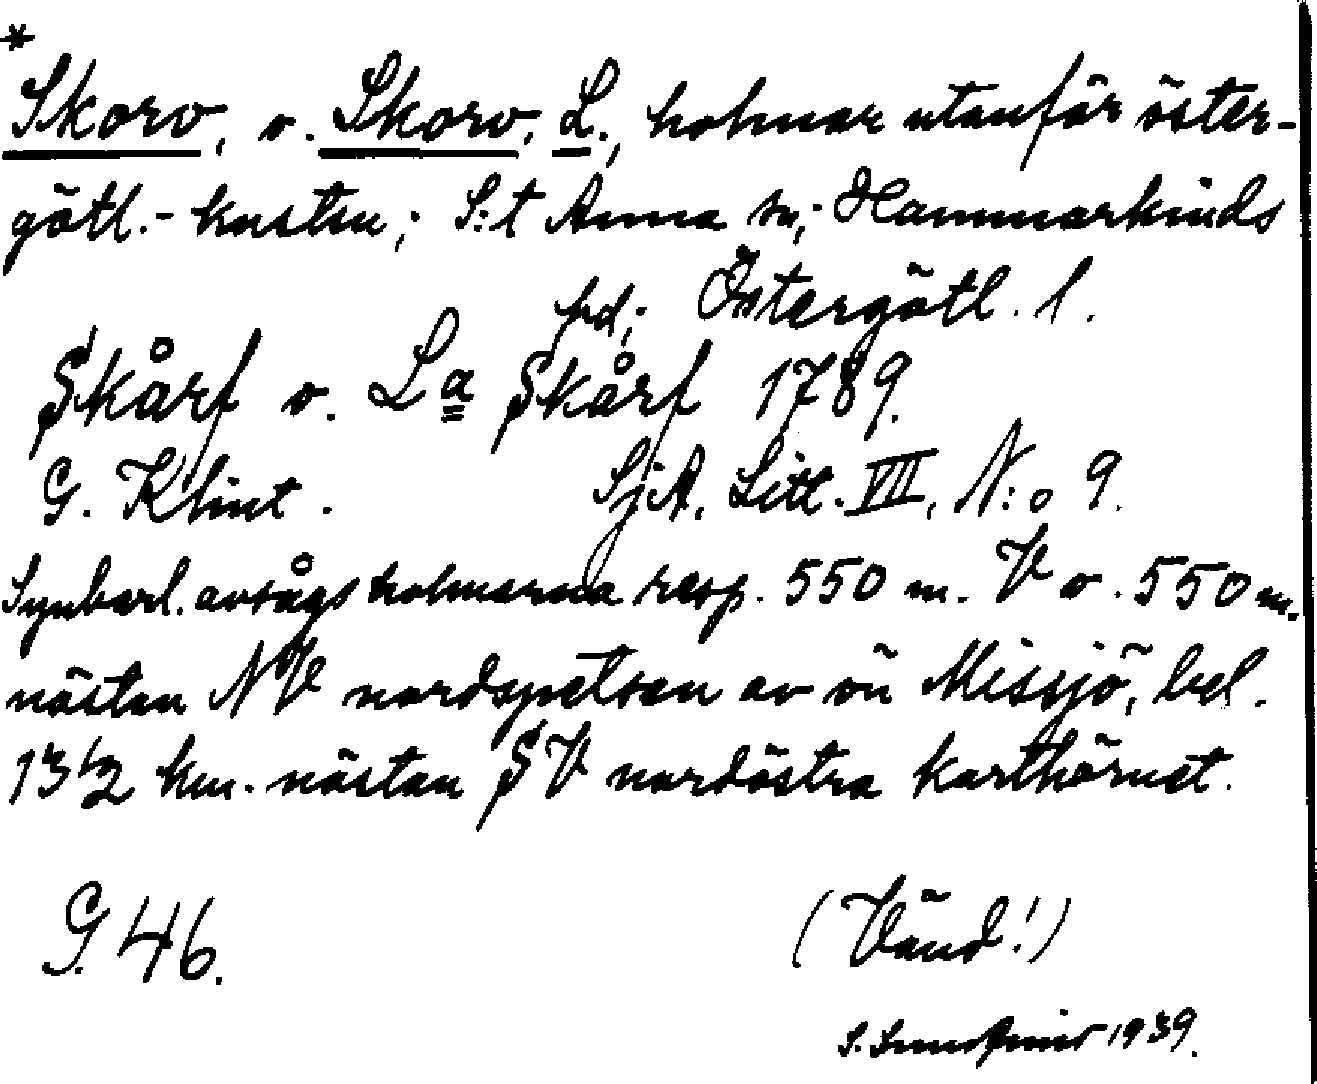 *
Skorv, o. Skorv, L., holmar utanför öster-
götl.- kusten; S:t Anna sn; Hammarkinds
hd; Östergötl. l.
Skårf o. La Skårf 1789.
G. Klint. SjA, Litt. VII, N:o 9.
Synbarl. avsågs holmarna resp. 550 m. V o. 550 m.
nästan NV nordspetsen av ön Missjö, bel.
13 1/2 km. nästan SV nordöstra karthörnet.
G. 46.
(Vänd!)
S. 1939.